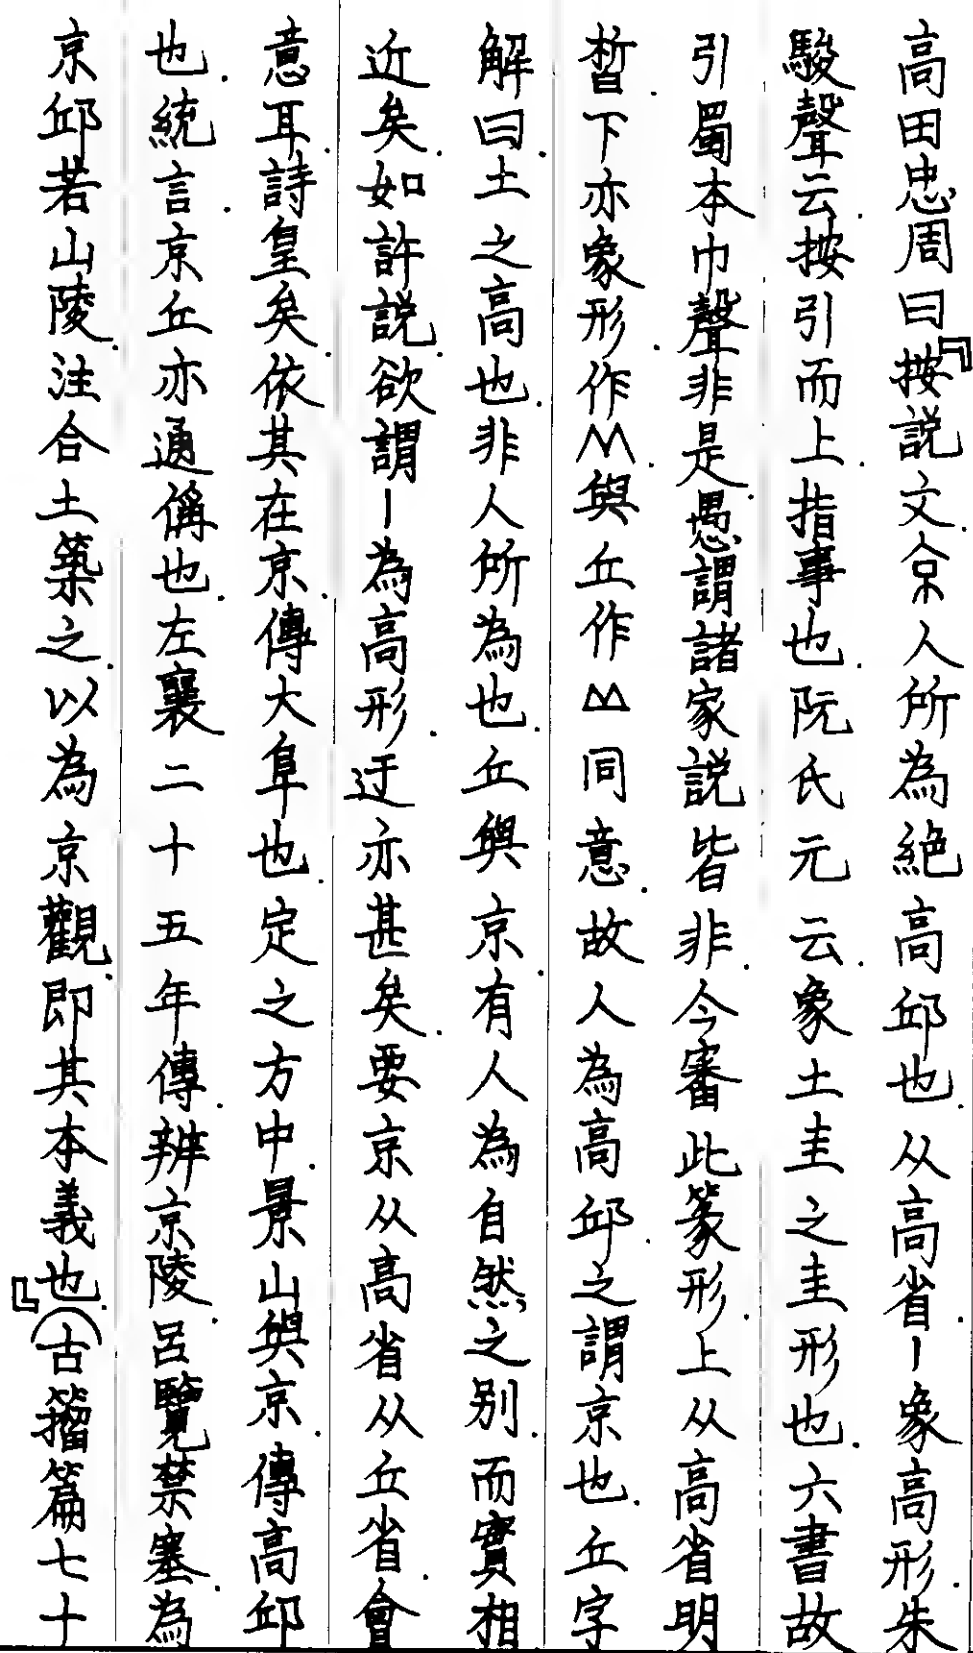 高田忠周曰『按説文.𠅘人所為絕高邱也.从高省丨象高形.朱
駿聲云.按引而上.指事也.阮氏元云.象土圭之圭形也.六書故
引蜀本巾聲非是.愚謂諸家説皆非.今審此篆形.上从高省明
晳.下亦象形.作.與丘作同意.故人為高邱.之謂京也.丘字
解曰.土之高也.非人所為也.丘與京.有人為自然之別.而實相
近矣.如許説.欲謂丨為高形.迂亦甚矣.要京从高省从丘省.會
意耳.詩皇矣.依其在京.傳大阜也.定之方中.景山與京.傳高邱
也.統言.京丘亦通偁也.左襄二十五年傳.辨京陵.呂覽禁塞.為
京邱若山陵.注合土築之.以為京觀.即其本義也.』(古籀篇七十